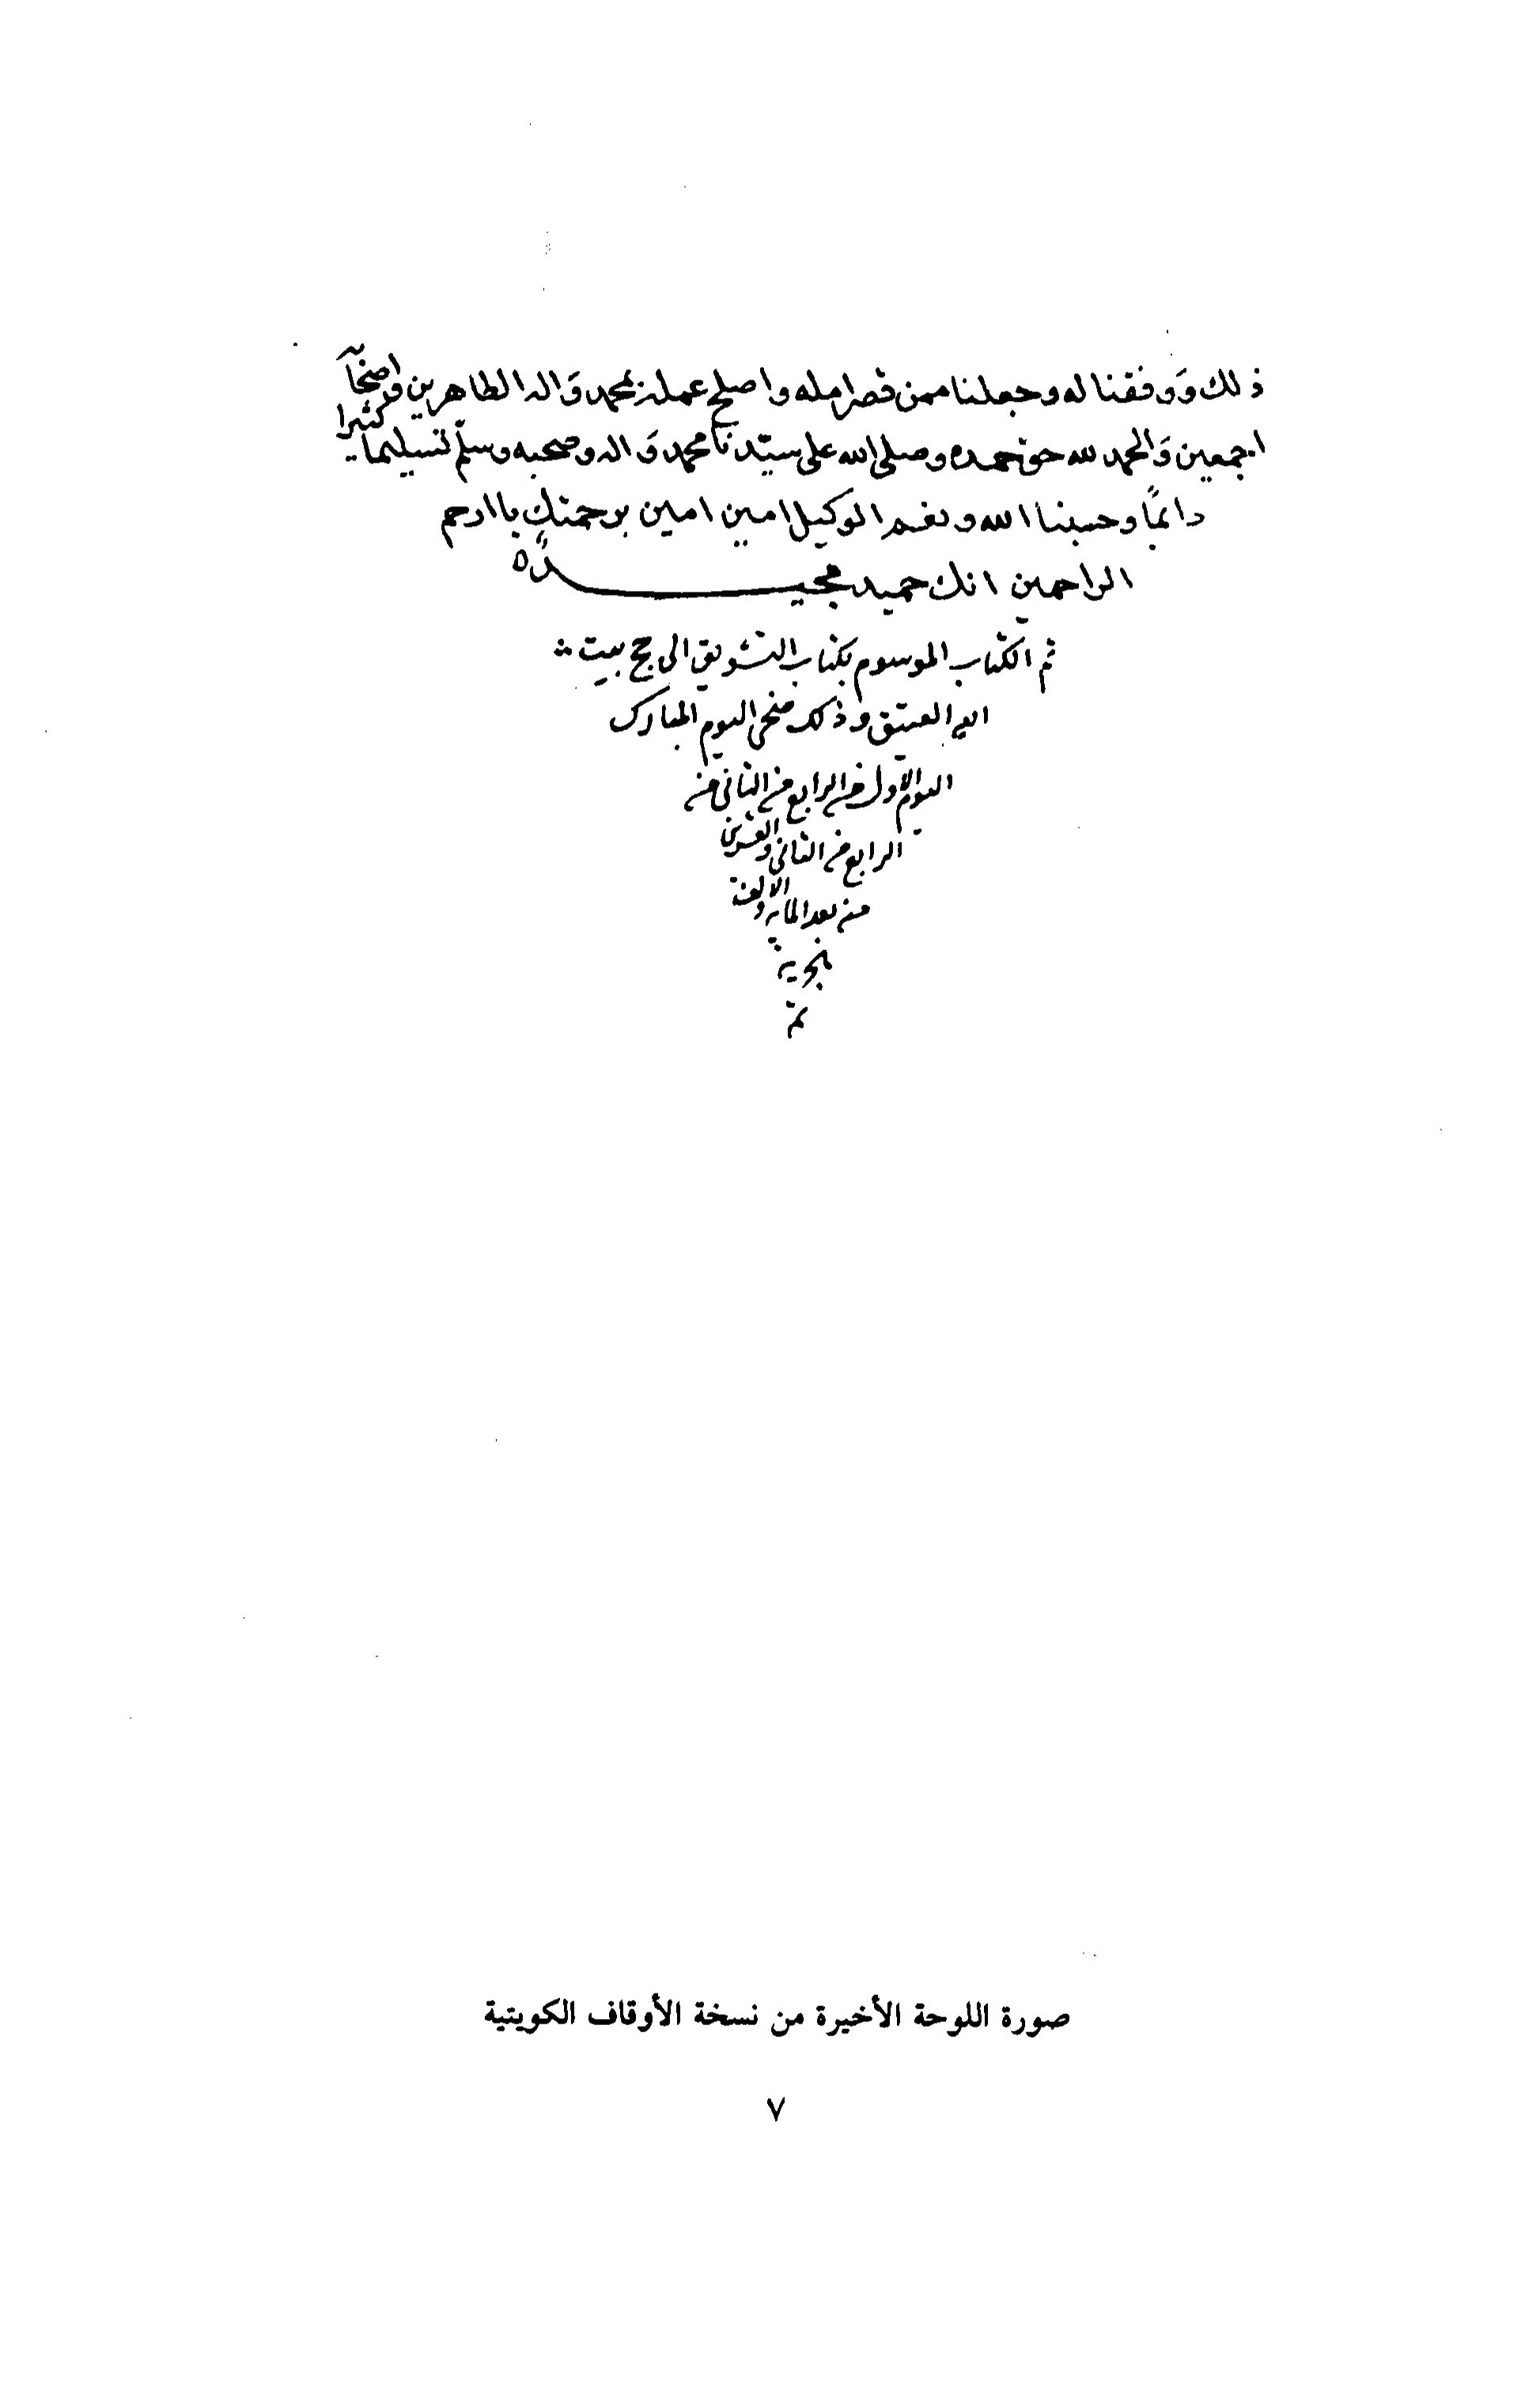 ذلك وَوفقنا له وجعلنا ممن قصر امله واصلح عمله بمحمد وَاله الطاهرين
اجمعين وَالحمد لله حق حمده وصلى الله على سيّدنا محمد وَاله وصحبه وسلّم تسليما كثيرا
دائماً وحسبنا الله ونعم الوكيل امين امين برحمتك ياارحم
الراحمين انك حميد مجيد
تم الكتاب الموسوم بكتاب التشويق الى حج بيت
العتيق وذلك ضحى اليوم المبارك
اليوم الاول من الرابع من الثاني من
الرابع من الثاني والعشرين
من بعد المايه والالف
تم
صورة اللوحة الأخيرة من نسخة الأوقاف الكويتية
٧